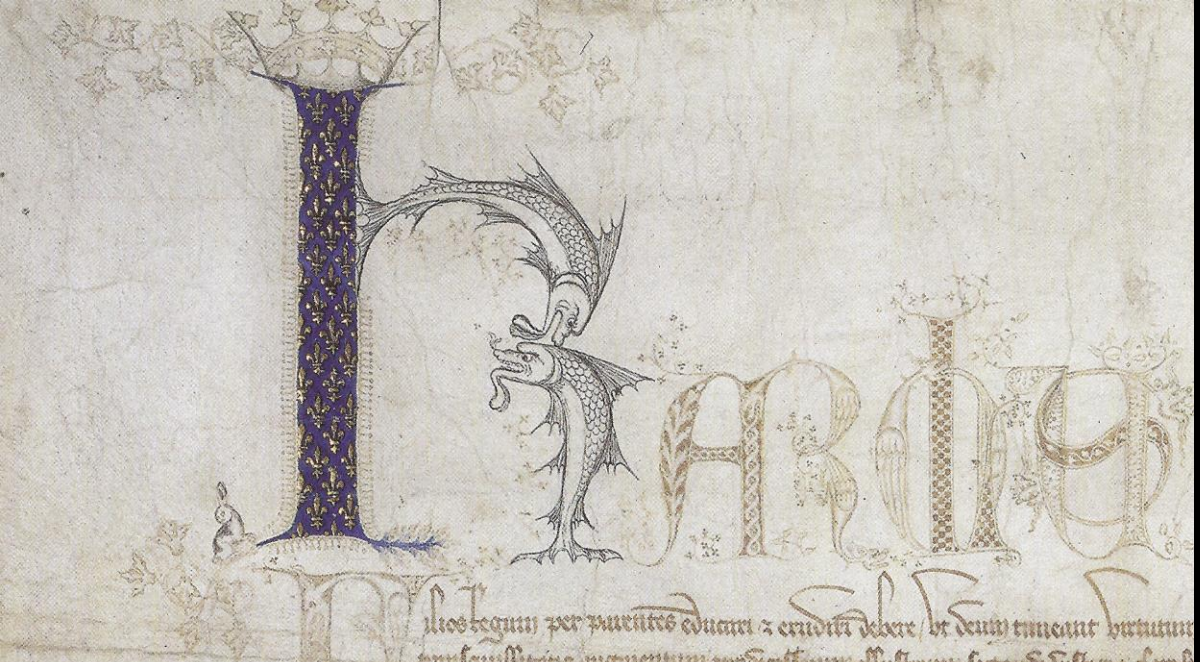 Karolus
Filios Regum per parentes educari ⁊ erudiri debere / Vt deum timeant virtutum